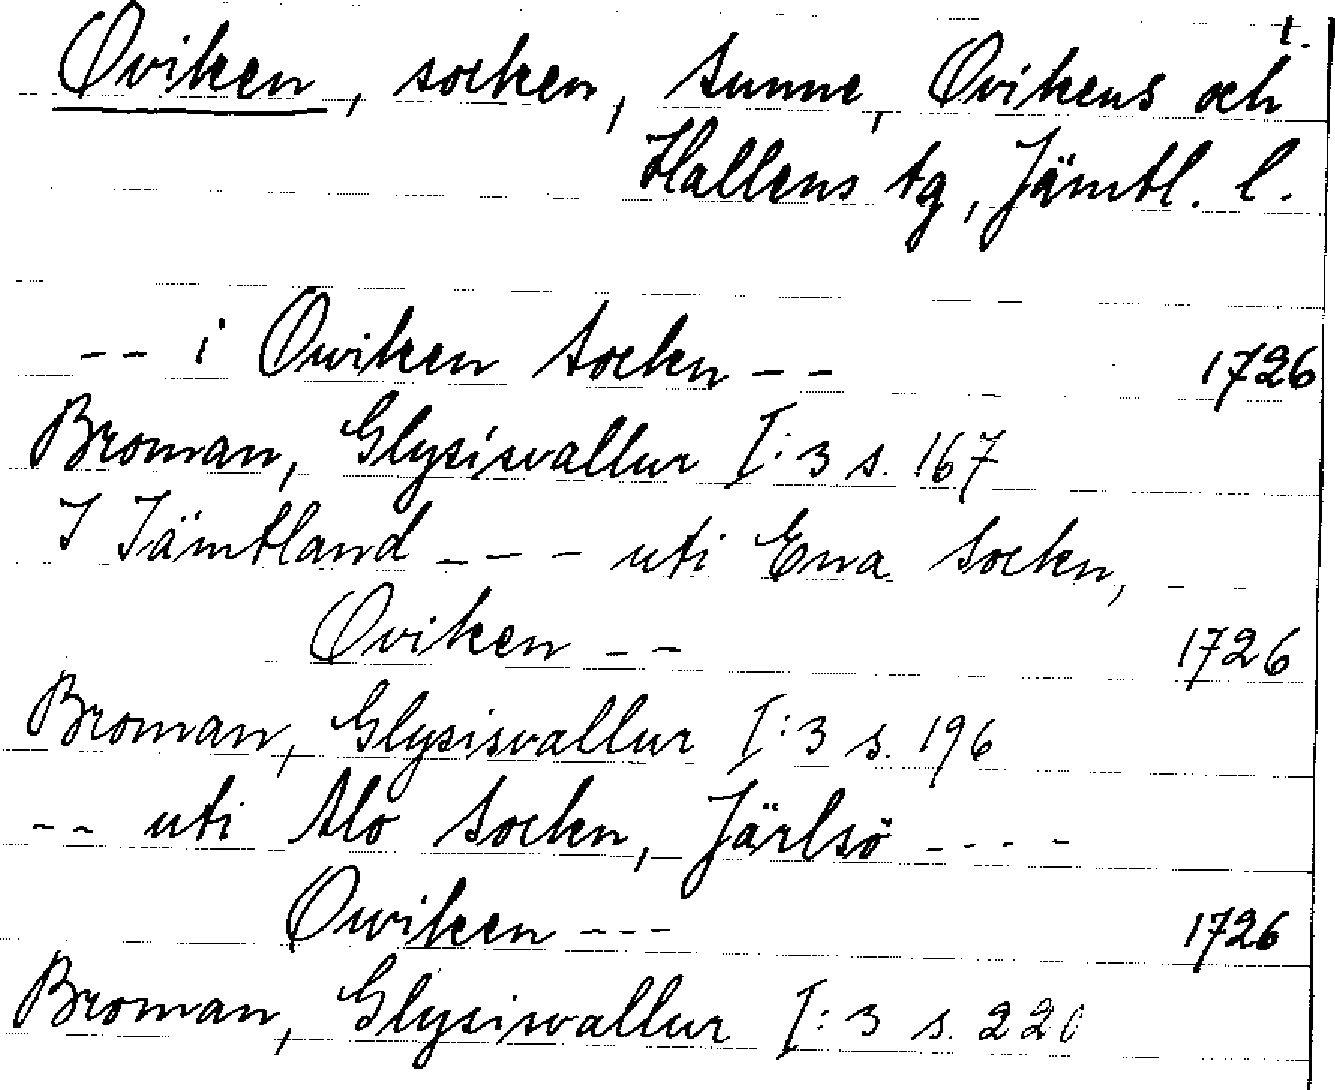 1.
Oviken, socken, Sunne, Ovikens och
Hallens tg, Jämtl. l.
-- i Owiken Sockn --  1726
Broman, Glysisvallur I:3 s. 167
I Jämtland --- uti Ena Sockn, --
Oviken --  1726
Broman, Glysisvallur I:3 s. 196
-- uti Alo Sockn, Järlsö ----
Owiken ---  1726
Broman, Glysisvallur I:3 s. 220